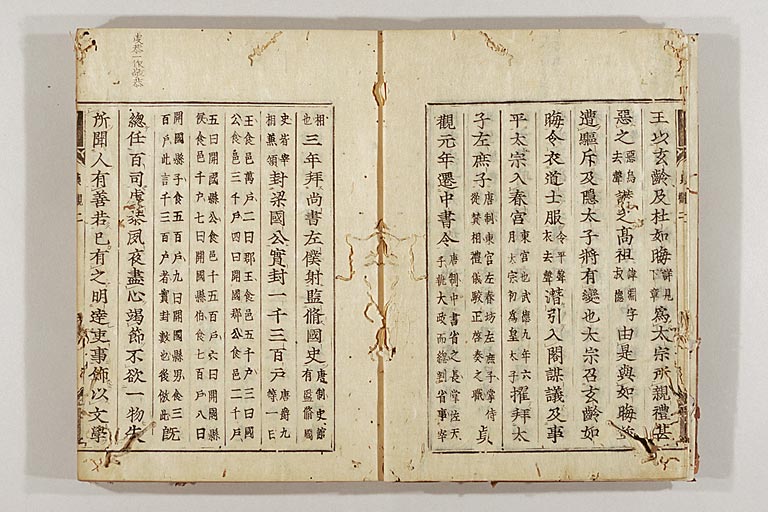 王以玄齡及杜如晦詳見下章爲太宗所親禮甚
惡之惡烏去聲譖之髙祖諱淵字叔德由是與如晦並
遭驅斥及隱太子將有變也太宗召玄齡如
晦令衣道士服令平聲衣去聲潛引入閤謀議及事
平太宗入春宮東宮也武德九年六月太宗初為皇太子擢拜太
子左庶子唐制東宮左春坊左庶子掌侍從賛相禮儀駁正啓奏之職貞
觀元年遷中書令唐制中書省之長掌佐天子執大政而緫判省事宰
相也三年拜尚書左僕射監脩國史唐制史館有監脩國
史皆宰相兼領封梁國公實封一千三百戶唐爵九等一曰
王食邑萬戶二曰郡王食邑五千戶三曰國
公食邑三千戶四曰開國郡公食邑二千戶
五曰開國縣公食邑千五百戶六曰開國縣
侯食邑千戶七曰開國縣伯食邑七百戶八曰
開國縣子食五百戶九曰開國縣男食三百戶此言千三百戶者實封數也後倣此既
總任百司虔恭夙夜盡心竭節不欲一物失
所聞人有善若己有之明達吏事飾以文學